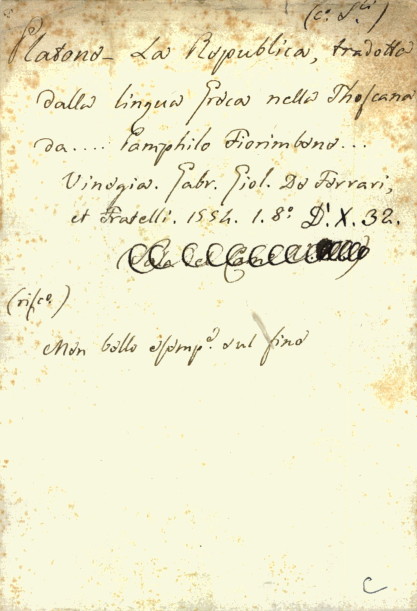 (co. S.ti)
Platone - La Republica, tradotta
dalla lingua Greca nella Thoscana
da.... Pamphilo Fiorimbene...
Vinegia. Gabr. Giol. De Ferrari,
et Fratelli. 1554. 1. 8º D. X. 32.
(risco)
Non bello esempº. sul fine
C